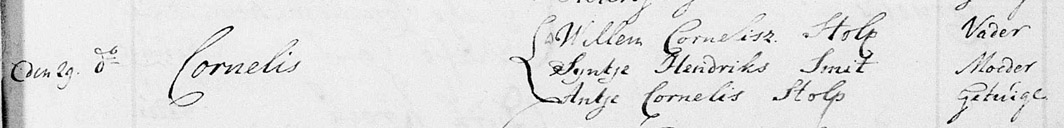 Willem Cornelisz. Stolp Vader
den 29. do Cornelis Syntje Hendriks Smit Moeder
Antje Cornelis Stolp getuige.